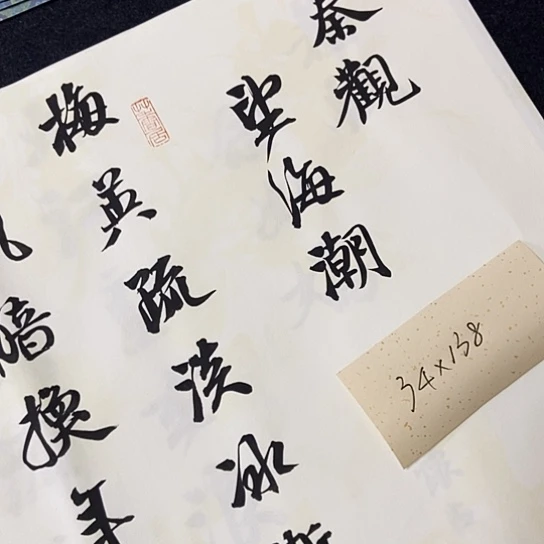 秦觀
望海潮
梅英疏淡冰
暗換年
34×138